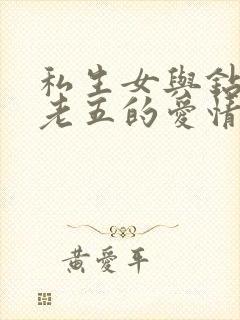 私生女與鉆
老五的愛情
黃愛平